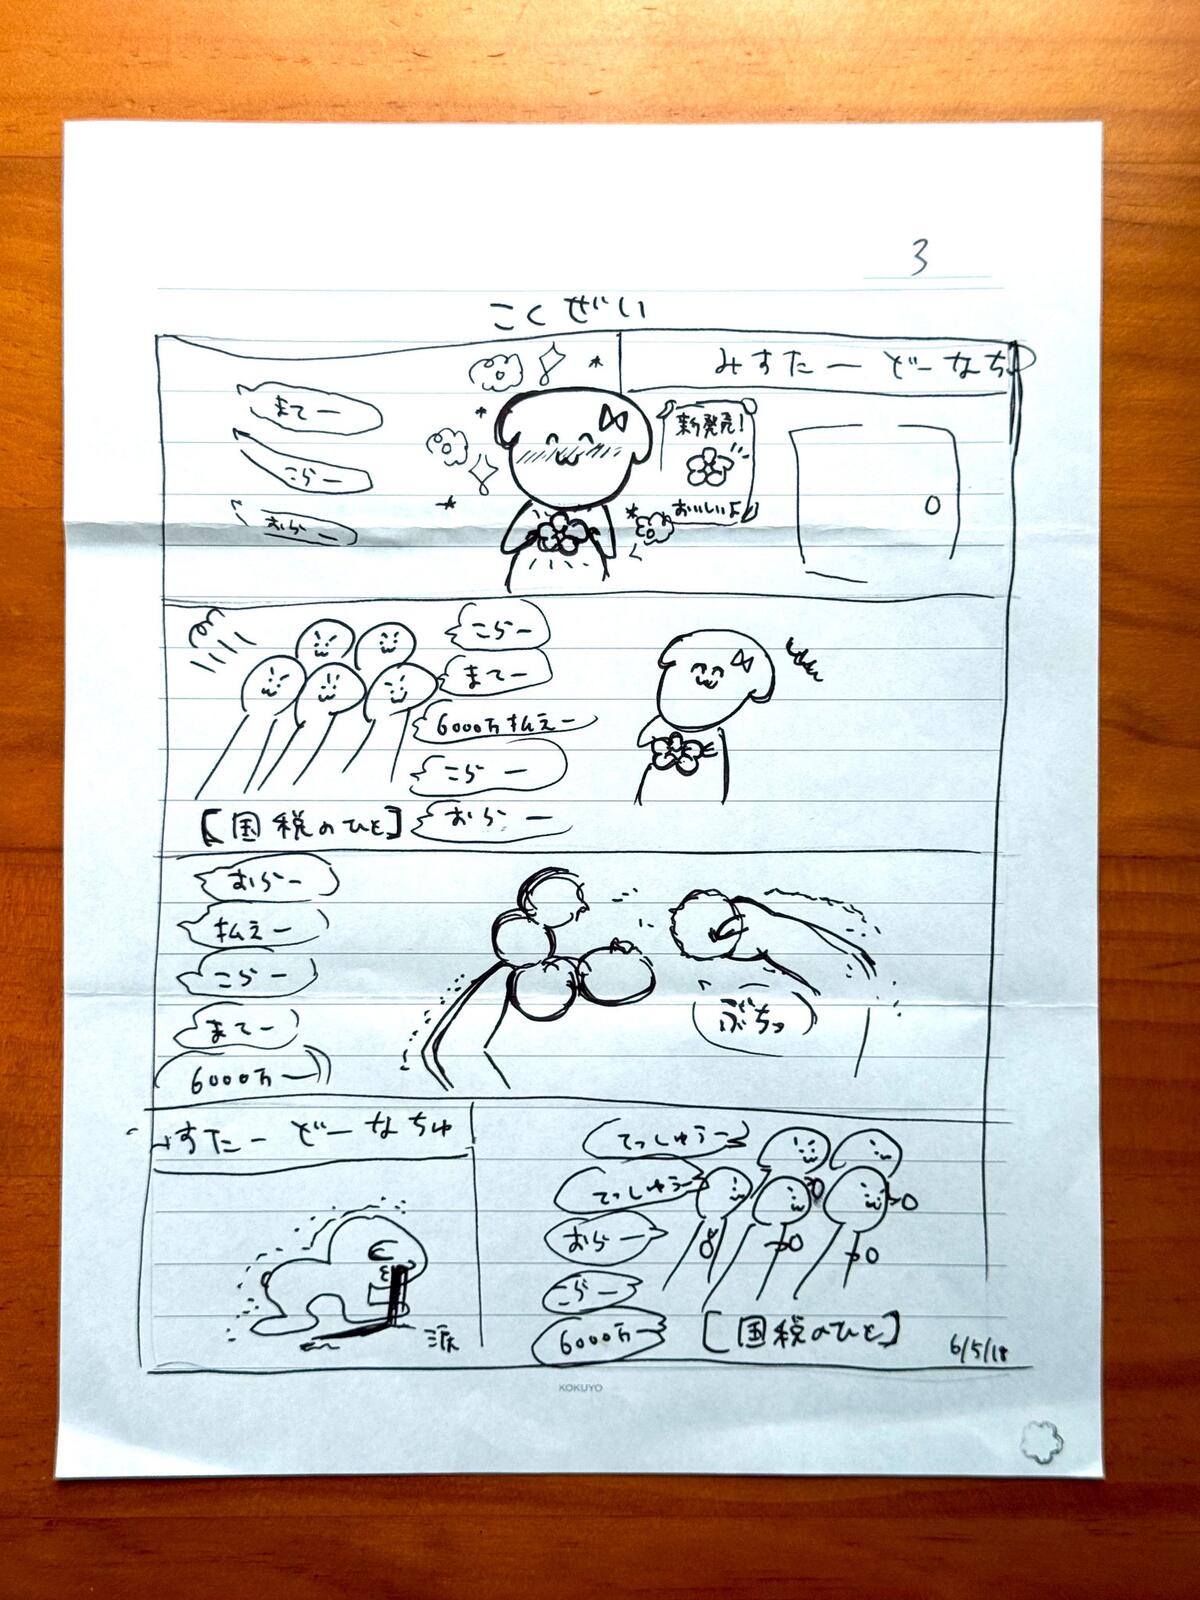 3
こくぜい
みすたーどーなちゅ
新発売!
おいしいよ
まてー
こらー
おらー
こらー
まてー
6000万払えー
こらー
おらー
【国税のひと】
おらー
払えー
こらー
まてー
6000万ー
ぶちっ
すたーどーなちゅ
涙
てっしゅうー
てっしゅうー
おらー
こらー
6000万ー
[国税のひと]
6/5/18
KOKUYO